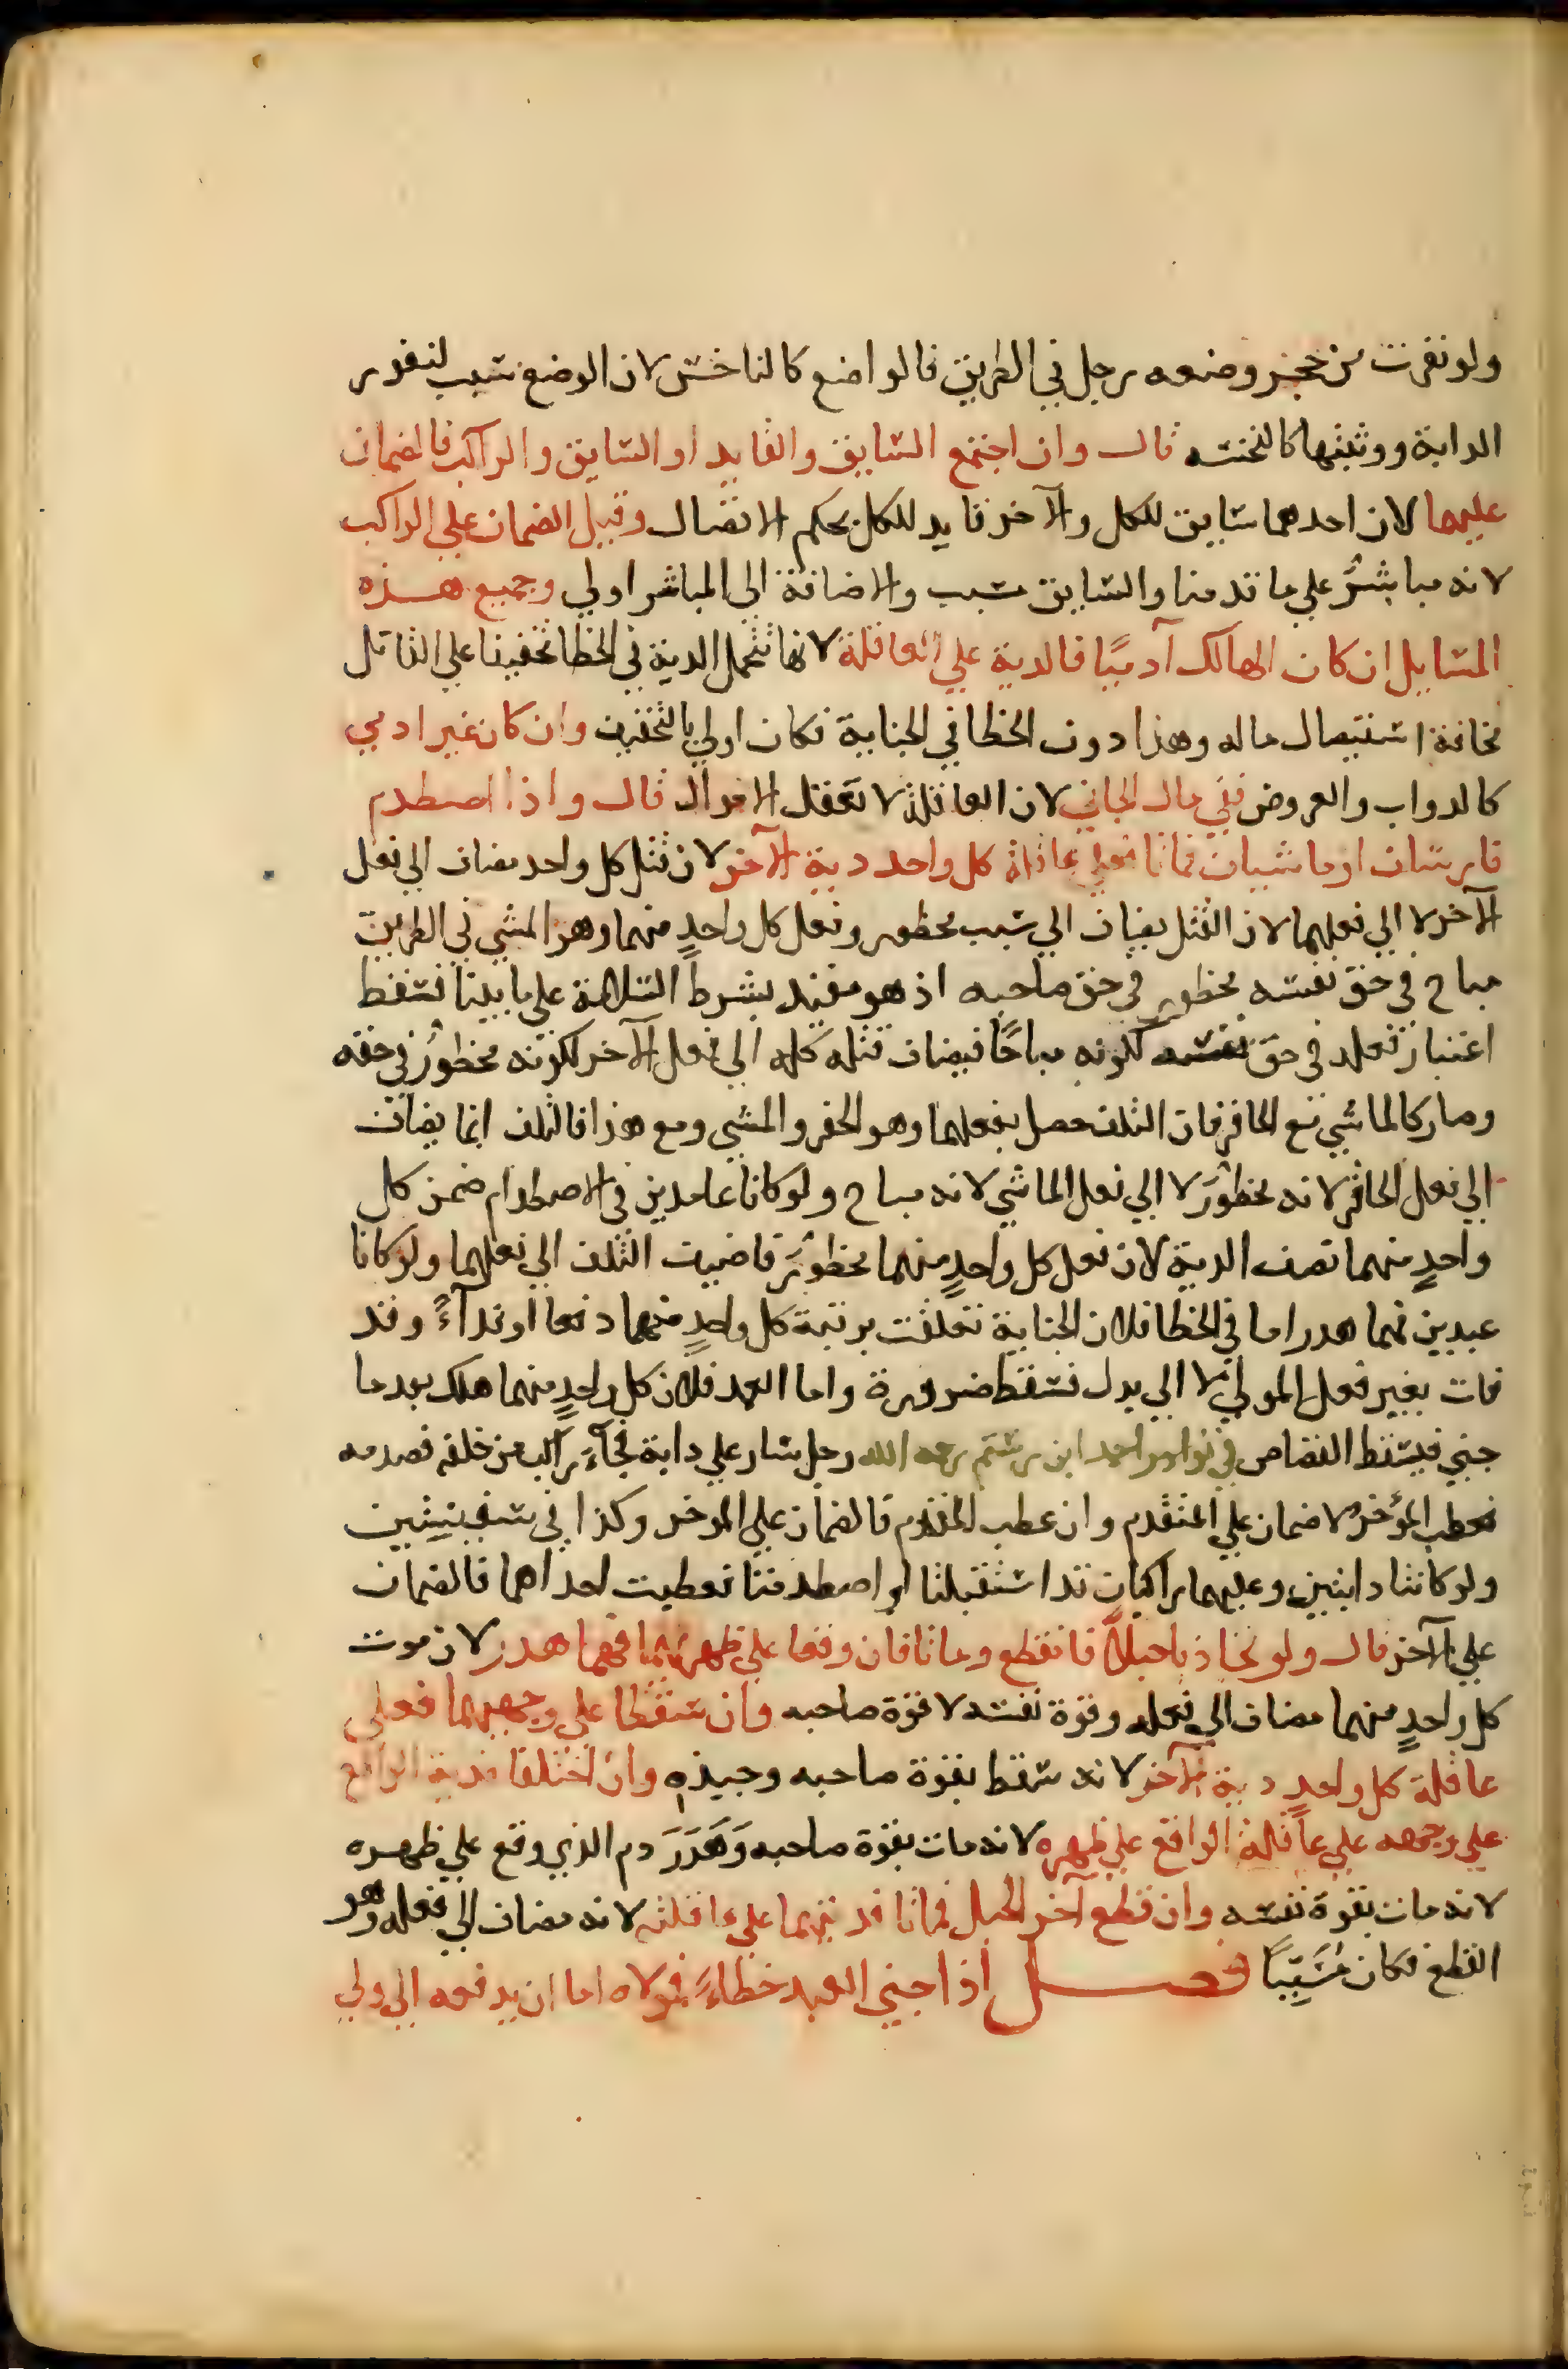 ولو نفرت من حجر وضعه رجل في الطريق فالواضع كالناخس لان الوضع سبب لنفور
الدابة ووثبتها كالنخسه قال وان اجتمع السايق والقايد او السايق والراكب فالضمان
عليهما لان احدهما سايق للكل والآخر قايد للكل بحكم الاتصال وقيل الضمان علي الراكب
لانه مباشرٌ علي ما قدمنا والسايق سبب والاضافة الي المباشر اولي وجميع هذه
المسايل ان كان الهالك آدميًا فالدية علي العاقلة لانها تتحمل الدية في الخطا تخفيفا علي القاتل
مخافة استيصال ماله وهذا دون الخطا في الجناية فكان اولي بالتخفيف وان كان غير ادمي
كالدواب والعروض ففي مال الجاني لان العاقلة لا تعقل الاموال قال واذا اصطدم
فارسان او ماشيان فماتا فعلي عاقلة كل واحد دية الآخر لان قتل كل واحد مضاف الي فعل
الآخر لا الي فعلهما لان القتل يضاف الي سبب محظور وفعل كل واحدٍ منهما وهو المشي في الطريق
مباح في حق نفسه محظور في حق صاحبه اذ هو مقيد بشرط السلامة علي ما بينا فسقط
اعتبار فعله في حق نفسه لكونه مباحًا فيضاف قتله كله الي فعل الآخر لكونه محظورٌ في حقه
وصار كالماشي مع الحافر فان التلف حصل بفعلهما وهو الحفر والمشي ومع هذا فالتلف انما يضاف
الي فعل الحافر لانه محظور لا الي فعل الماشي لانه مباح ولو كانا عامدين في الاصطدام ضمن كل
واحدٍ منهما نصف الدية لان فعل كل واحدٍ منهما محظورٌ فاضيف التلف الي فعلهما ولو كانا
عبدين فهما هدر اما في الخطا فلان الجناية تعلقت برقبة كل واحدٍ منهما دفعا او فدآءً وقد
فات بغير فعل المولي لا الي بدل فسقط ضرورة واما العمد فلان كل واحدٍ منهما هلك بعد ما
جني فيسقط القصاص في نوادر احمد ابن رستم رحمه الله رجل سار علي دابة فجآء راكب من خلفه فصدمه
فعطب المؤخر لا ضمان علي المتقدم وان عطب المتقدم فالضمان علي الموخر وكذا في سفينيتين
ولو كانتا دابتين وعليهما راكبان قد استقبلتا او اصطدمتا فعطبت احداهما فالضمان
علي الآخر قال ولو تجاذبا حبلاً فانقطع وماتا فان وقعا علي ظهرهما فهما هدر لان موت
كل واحدٍ منهما مضاف الي فعله وقوة نفسه لا قوة صاحبه وان سقطا علي وجههما فعلي
عاقلة كل واحدٍ دية الآخر لانه سقط بقوة صاحبه وجبذه وان اختلفا فدية الواقع
علي وجهه علي عاقلة الواقع علي ظهره لانه مات بقوة صاحبه وَهَدَرَ دم الذي وقع علي ظهره
لانه مات بقوة نفسه وان قطع آخر الحبل فماتا فديتهما علي عاقلته لانه مضاف الي فعله وهو
القطع فكان مُسَبِّبًا فصل اذا جني العبد خطاءً فمولاه اما ان يدفعه الي ولي